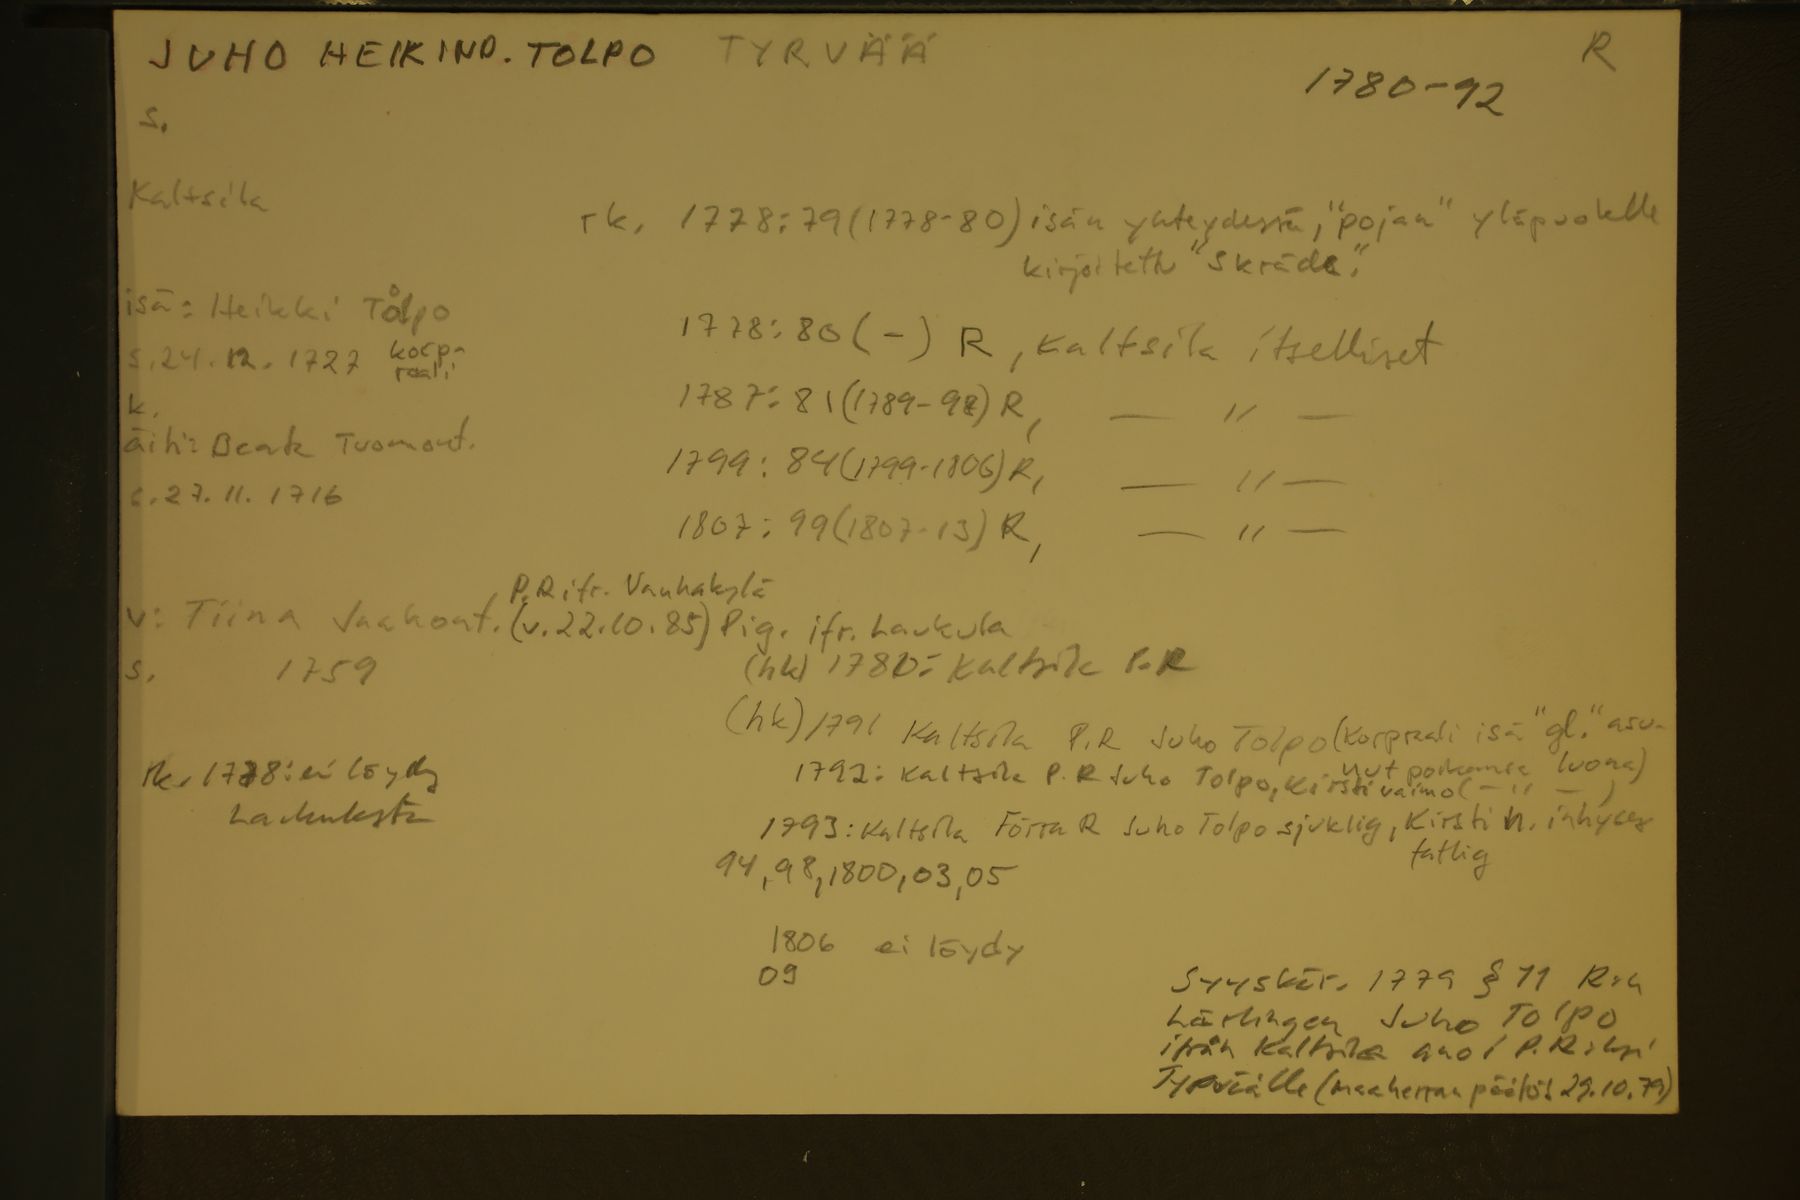 JUHO HEIKINP. TOLPO TYRVÄÄ R
1780-92
s.
Kaltsila
rk. 1778:79(1778-80) isän yhteydessä, "pojan" yläpuolelle
kirjoitettu "Skräd".
isä: Heikki Tålpo
s. 24.12.1727 korp-
raali
1778:80(-) R, Kaltsila itselliset
k.
1787:81(1789-98) R, — " —
äiti: Beata Tuomont.
1799:84(1799-1806) R, — " —
s. 27.11.1716
1807:99(1807-13) R, — " —
P.R ifr. Vanhakylä
v: Tiina Jaakont. (v. 22.10.85) Pig. ifr. Laukula
s. 1759
(hk) 1780: Kaltsila P.R
(hk) 1791 Kaltsila P.R Juho Tolpo (korpraali isä "gl." asu-
nut poikansa luona)
1792: Kaltsila P.R Juho Tolpo, Kirsti vaimo (— " —)
rk. 1778: ei löydy
Laukulasta
1793: Kaltsila Förra R Juho Tolpo sjuklig, Kirsti h. inhyses
fatlig
94, 98, 1800, 03, 05
1806 ei löydy
09
Syyskär. 1779 § 11 R:n
Lärlingen Juho Tolpo
ifrån Kaltsila anoi P.R:ksi
Tyrväälle (maaherran päätös 29.10.79)